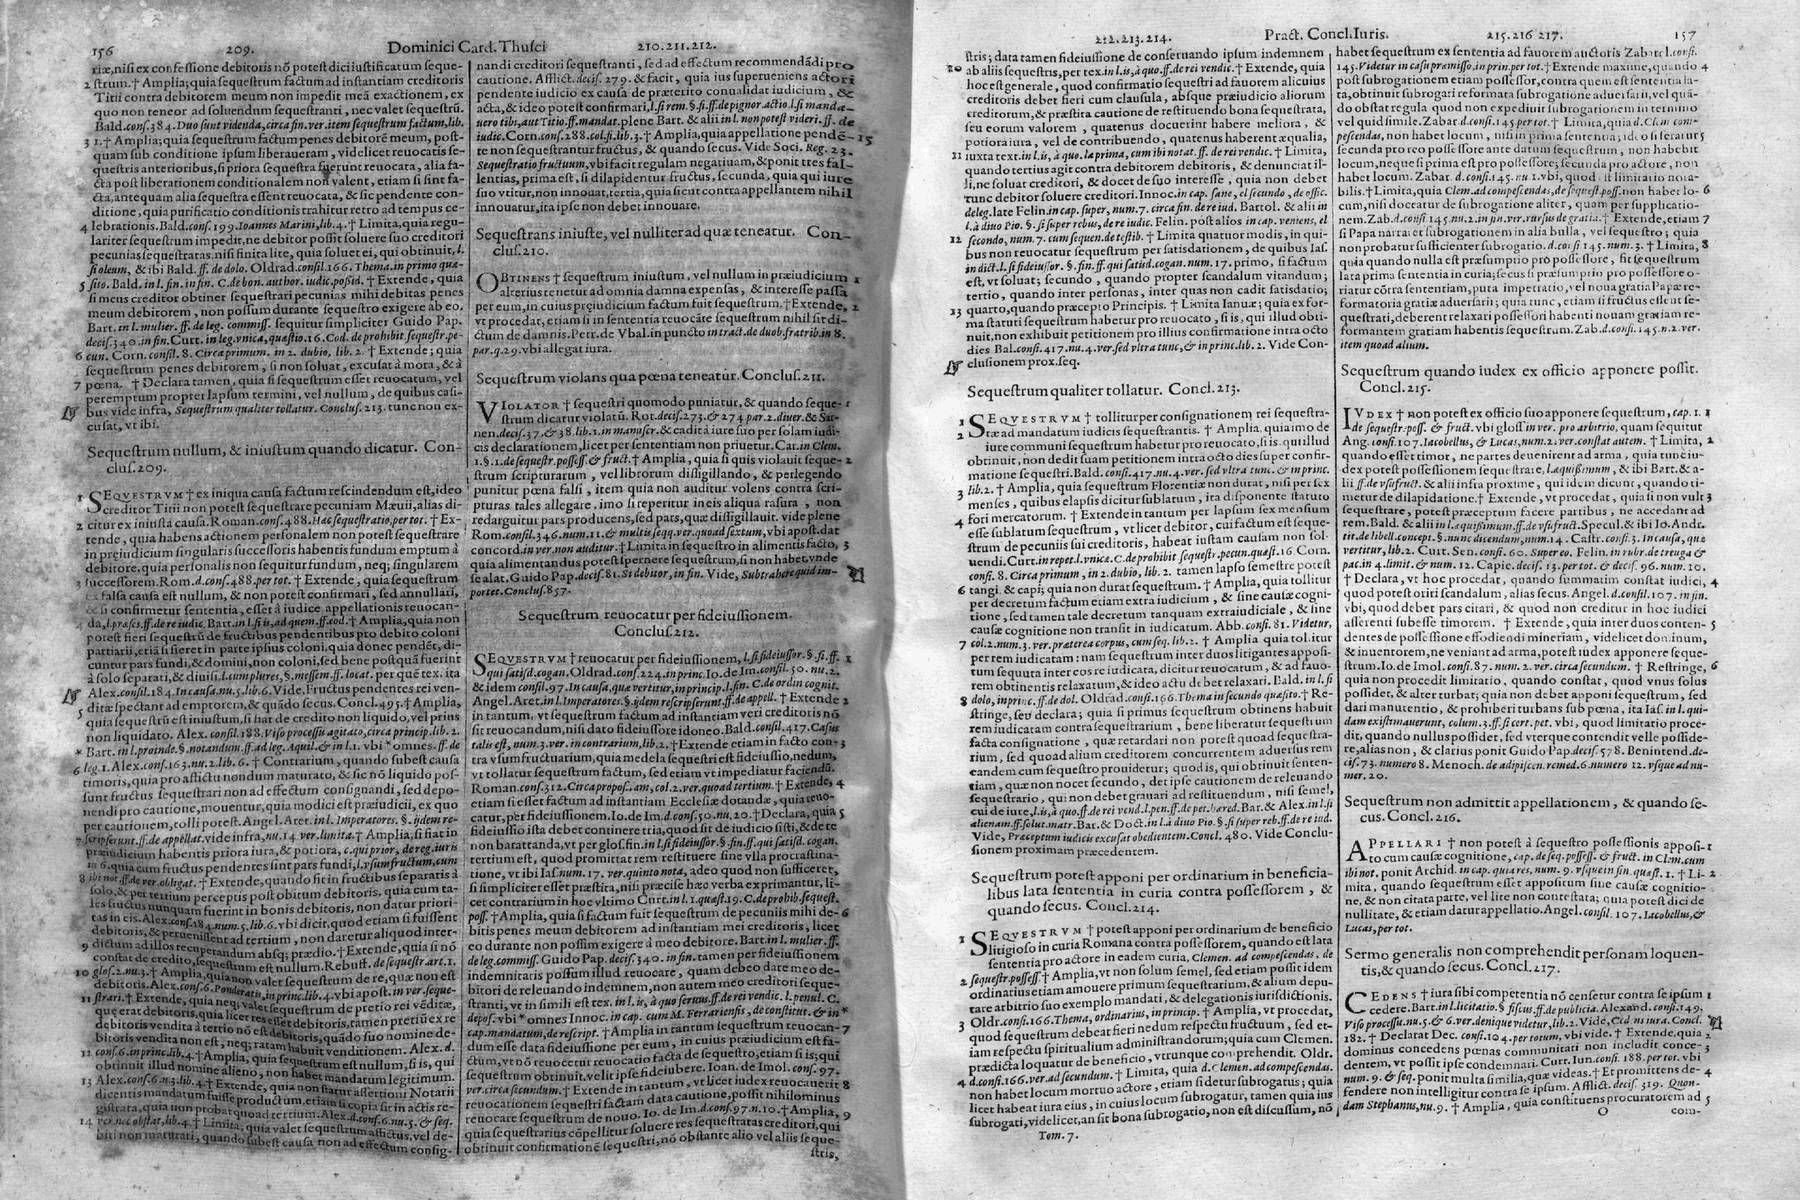 156 209. Dominici Card. Thusci 210.211.212.
riæ, nisi ex confessione debitoris nō potest dici iustificatum seque-
2 strum. † Amplia; quia sequestrum factum ad instantiam creditoris
Titii contra debitorem meum non impedit meā exactionem, ex
quo non teneor ad soluendum sequestranti, nec valet sequestrū.
Bald. cons. 384. Duo sunt videnda, circa fin. ver. item sequestrum factum, lib.
3 1. † Amplia; quia sequestrum factum penes debitorē meum, post-
quam sub conditione ipsum liberaueram, videlicet reuocatis se-
questris anterioribus, si priora sequestra fuerunt reuocata, alia fa-
cta post liberationem conditionalem non valent, etiam si sint fa-
cta, antequam alia sequestra essent reuocata, & sic pendente con-
ditione, quia purificatio conditionis trahitur retro ad tempus ce-
4 lebrationis. Bald. cons. 199. Ioannes Marini, lib. 4. † Limita, quia regu-
lariter sequestrum impedit, ne debitor possit soluere suo creditori
pecunias sequestratas, nisi finita lite, quia soluet ei, qui obtinuit, l.
si oleum, & ibi Bald. ff. de dolo. Oldrad. consil. 166. Thema in primo quæ-
5 sito. Bald. in l. fin. in fin. C. de bon. author. iudic. possid. † Extende, quia
si meus creditor obtinet sequestrari pecunias mihi debitas penes
meum debitorem, non possum durante sequestro exigere ab eo.
Bart. in l. mulier. ff. de leg. commiss. sequitur simpliciter Guido Pap.
decis. 340. in fin. Curt. in leg. vnica, quæstio. 16. Cod. de prohibit. sequestr. pe-
6 cun. Corn. consil. 8. Circa primum. in 2. dubio, lib. 2. † Extende; quia
sequestrum penes debitorem, si non soluat, excusat à mora, & à
7 pœna. † Declara tamen, quia si sequestrum esset reuocatum, vel
peremptum propter lapsum termini, vel nullum, de quibus casi-
bus vide infra, Sequestrum qualiter tollatur. Conclus. 213. tunc non ex-
cusat, vt ibi.
Sequestrum nullum, & iniustum quando dicatur. Con-
clus. 209.
1 SEQVESTRVM † ex iniqua causa factum rescindendum est, ideo
creditor Titii non potest sequestrare pecuniam Mæuii, alias di-
2 citur ex iniusta causa. Roman. cons. 488. Hæc sequestratio, per tot. † Ex-
tende, quia habens actionem personalem non potest sequestrare
in preiudicium singularis successoris habentis fundum emptum à
debitore, quia personalis non sequitur fundum, neq; singularem
3 successorem. Rom. d. cons. 488. per tot. † Extende, quia sequestrum
ex falsa causa est nullum, & non potest confirmari, sed annullari,
& si confirmetur sententia, esset à iudice appellationis reuocan-
da, l. præses. ff. de re iudic. Bart. in l. si is, ad quem. ff. eod. † Amplia, quia non
potest fieri sequestrū de fructibus pendentibus pro debito coloni
partiarii, etiā si sieret in parte ipsius coloni, quia donec pendēt, di-
cuntur pars fundi, & domini, non coloni, sed bene postquā fuerint
à solo separati, & diuisi. l. cum plures, §. messem. ff. locat. per quē tex. ita
Alex. consil. 184. In causa, nu. 5. lib. 6. Vide. Fructus pendentes rei ven-
ditæ spectant ad emptorem, & quādo secus. Concl. 495. † Amplia,
5 quia sequestrū est iniustum, si fiat de credito non liquido, vel prius
non liquidato. Alex. consil. 188. Viso processu agitato, circa princip. lib. 2.
* Bart. in l. proinde. §. notandum. ff. ad leg. Aquil. & in l. 1. vbi * omnes. ff. de
6 leg. 1. Alex. cons. 163. nu. 2. lib. 6. † Contrarium, quando subest causa
timoris, quia pro astictu nondum maturato, & sic nō liquido pos-
sunt fructus sequestrari non ad effectum consignandi, sed depo-
nendi pro cautione, mouentur, quia modici est præiudicii, ex quo
per cautionem, tolli potest. Angel. Aret. in l. Imperatores. §. ijdem re-
7 scripserunt. ff. de appellat. vide infra, nu. 14. ver. limita. † Amplia; si fiat in
præiudicium habentis priora iura, & potiora, c. qui prior, de reg. iuris
in 6. quia cum fructus pendentes sint pars fundi, l. vsumfructum, cum
8 ibi not. ff. de ver. obligat. † Extende, quando fit in fructibus separatis à
solo, & per tertium perceptis post obitum debitoris, quia cum ta-
les fructus nunquam fuerint in bonis debitoris, non datur priori-
tas in eis. Alex. cons. 184. num. 5. lib. 6. vbi dicit, quod etiam si fuissent
debitoris, & peruenissent ad tertium, non daretur aliquod inter-
9 dictum ad illos recuperandum absq; prædio. † Extende, quia si nō
constat de credito, sequestrum est nullum. Rebuff. de sequestr. art. 1.
10 glos. 2. nu. 3. † Amplia, quia non valet sequestrum de re, quæ non est
debitoris. Alex. cons. 6. Ponderatis, in princ. lib. 4. vbi apost. in ver. seque-
11 strari. † Extende, quia neq; valet sequestrum de pretio rei vēditæ,
que erat debitoris, quia licet res esset debitoris, tamen pretiū ex re
debitoris vendita à tertio nō est debitoris, quādo suo nomine de-
bitoris vendita non est, neq; ratam habuit venditionem. Alex. d.
12 cons. 6. in princ. lib. 4. † Amplia, quia sequestrum est nullum, si is, qui
obtinuit illud nomine alieno, non habet mandatum legitimum.
13 Alex. cons. 6. n. 3. lib. 4. † Extende, quia non statur assertioni Notarii
dicentis mandatum fuisse productum, etiam si copia sit in actis re-
gistrata, quia non probat quoad tertium. Alex. d. cons. 6. nu. 5. & seq.
14 ver. nec obstat, lib. 4. † Limita, quia valet sequestrum affictus, vel de-
biti non maturati, quando subest causa non ad effectum consig-
nandi creditori sequestranti, sed ad effectum recommendādi pro
cautione. Afflict. decis. 279. & facit, quia ius superueniens actori
pendente iudicio ex causa de præterito conualidat iudicium, &
acta, & ideo potest confirmari, l. si rem. §. si. ff. de pignor. actio. l. si manda-
uero tibi, aut Titio. ff. mandat. plene Bart. & alii in l. non potest videri. ff. de
iudic. Corn. cons. 288. col. fi. lib. 3. † Amplia, quia appellatione pendē- 15
te non sequestrantur fructus, & quando secus. Vide Soci. Reg. 23.
Sequestratio fructuum, vbi facit regulam negatiuam, & ponit tres fal-
lentias, prima est, si dilapidentur fructus, secunda, quia qui iure
suo vtitur, non innouat, tertia, quia sicut contra appellantem nihil
innouatur, ita ipse non debet innouare.
Sequestrans iniuste, vel nulliter ad quæ teneatur. Con-
clus. 210.
OBTINENS † sequestrum iniustum, vel nullum in præiudicium 1
alterius tenetur ad omnia damna expensas, & interesse passa
per eum, in cuius prejudicium factum fuit sequestrum. † Extende, 2
vt procedat, etiam si in sententia reuocāte sequestrum nihil sit di-
ctum de damnis. Petr. de Vbal. in puncto in tract. de duob. fratrib. in 8.
par. q. 29. vbi allegat iura.
Sequestrum violans qua pœna teneatur. Conclus. 211.
VIOLATOR † sequestri quomodo puniatur, & quando seque- 1
strum dicatur violatū. Rot. decis. 273. & 274 par. 2. diuer. & Sar-
nen. decis. 37. & 38. lib. 1. in manuscr. & cadit à iure suo per solam iudi-
cis declarationem, licet per sententiam non priuetur. Car. in Clem.
1. §. 1. de sequestr. possess. & fruct. † Amplia, quia si quis violauit seque- 2
strum scripturarum, vel librorum dissigillando, & perlegendo
punitur pœna falsi, item quia non auditur volens contra scri-
pturas tales allegare, imo si reperitur in eis aliqua rasura, non
redarguitur pars producens, sed pars, quæ dissigillauit. vide plene
Rom. cons. 346. num. 11. & multis seqq. ver. quoad sextum, vbi apost. dat
concord. in ver. non auditur. † Limita in sequestro in alimentis facto, 3
quia alimentandus potest spernere sequestrum, si non habet, vnde
se alat. Guido Pap. decis. 81. Si debitor, in fin. Vide, Subtrahere quid im-
portet. Conclus. 857.
Sequestrum reuocatur per fideiussionem.
Conclus. 212.
SEQVESTRVM † reuocatur per fideiussionem, l. si fideiussor. §. fi. ff. 1
qui satisd. cogan. Oldrad. cons. 224. in princ. Io. de Im. consil. 50. nu. 2.
& idem consil. 97. In causa, quæ vertitur, in princip. l. fin. C. de ordin cognit.
Angel. Aret. in l. Imperatores. §. ijdem rescripserunt. ff. de appell. † Extende 2
in tantum, vt sequestrum factum ad instantiam veri creditoris nō
sit reuocandum, nisi dato fideiussore idoneo. Bald. cons. 417. Casus
talis est, num. 3. ver. in contrarium, lib. 2. † Extende etiam in facto con- 3
tra vsumfructuarium, quia medela sequestri est fideiussio, nedum,
vt tollatur sequestrum factum, sed etiam vt impediatur faciendū.
Roman. cons. 312. Circa propos. am, col. 2. ver. quoad tertium. † Extende, 4
etiam si esset factum ad instantiam Ecclesiæ dotandæ, quia reuo-
catur, per fideiussionem. Io. de Im. d. cons. 50. nu. 20. † Declara, quia 5
fideiussio ista debet continere tria, quod sit de iudicio sisti, & de re
non barattanda, vt per glos. fin. in l. si fideiussor. §. fin. ff. qui satisd. cogan.
tertium est, quod promittat rem restituere sine vlla procrastina-
tione, vt ibi Ias. num. 17. ver. quinto nota, adeo quod non sufficeret,
si simpliciter esset præstita, nisi præcise hæc verba exprimantur, li-
cet contrarium in hoc vltimo Curt. in l. 1. quæst. 19. C. de prohib. sequest.
poss. † Amplia, quia si factum fuit sequestrum de pecuniis mihi de- 6
bitis penes meum debitorem ad instantiam mei creditoris, licet
eo durante non possim exigere à meo debitore. Bart. in l. mulier. ff.
de leg. commiss. Guido Pap. decis. 340. in fin. tamen per fideiussionem
indemnitatis possum illud reuocare, quam debeo dare meo de-
bitori de releuando indemnem, non autem meo creditori seque-
stranti, vt in simili est tex. in l. is, à quo seruus. ff. de rei vendic. l. penul. C.
depos. vbi * omnes Innoc. in cap. cum M. Ferrariensis, de constitut. & in *
cap. mandatum, de rescript. † Amplia in tantum sequestrum reuocan- 7
dum esse data fideiussione per eum, in cuius præiudicium est fa-
ctum, vt nō reuocetur reuocatio facta de sequestro, etiam si is; qui
sequestrum obtinuit, velit ipse fideiubere. Ioan. de Imol. cons. 97.
ver. circa secundum. † Extende in tantum, vt licet iudex reuocauerit 8
reuocationem sequestri factam data cautione, possit nihilominus
reuocare sequestrum de nouo. Io. de Im. d. cons. 97. n. 10. † Amplia, 9
quia sequestrarius cōpellitur soluere res sequestratas creditori, qui
obtinuit confirmationē sequestri, nō obstante alio vel aliis seque-
stris,
212.213.214. Pract. Concl. Iuris. 215.216 217. 157
stris; data tamen fideiussione de conseruando ipsum indemnem,
10 ab aliis sequestris, per tex. in l. is, à quo. ff. de rei vendic. † Extende, quia
hoc est generale, quod confirmatio sequestri ad fauorem alicuius
creditoris debet fieri cum clausula, absque præiudicio aliorum
creditorum, & præstita cautione de restituendo bona sequestrata,
seu eorum valorem, quatenus docuerint habere meliora, &
potiora iura, vel de contribuendo, quatenus haberent æqualia,
11 iuxta text. in l. is, à quo. la prima, cum ibi notat. ff. de rei vendic. † Limita,
quando tertius agit contra debitorem debitoris, & denunciat il-
li, ne soluat creditori, & docet de suo interesse, quia non debet
tunc debitor soluere creditori. Innoc. in cap. sane, el secundo, de offic.
deleg. late Felin. in cap. super, num. 7. circa fin. de re iud. Bartol. & alii in
l. à diuo Pio. §. si super rebus, de re iudic. Felin. post alios in cap. veniens, el
12 secondo, num. 7. cum sequen. de testib. † Limita quatuor modis, in qui-
bus non reuocatur sequestrum per satisdationem, de quibus Ias.
in dict. l. si fideiussor. §. fin. ff. qui satisd. cogan. num. 17. primo, si factum
est, vt soluat; secundo, quando propter scandalum vitandum;
tertio, quando inter personas, inter quas non cadit satisdatio;
13 quarto, quando præcepto Principis. † Limita Ianuæ; quia ex for-
ma statuti sequestrum habetur pro reuocato, si is, qui illud obti-
nuit, non exhibuit petitionem pro illius confirmatione intra octo
dies Bal. cons. 417. nu. 4. ver. sed vltra tunc, & in princ. lib. 2. Vide Con-
clusionem prox. seq.
Sequestrum qualiter tollatur. Concl. 213.
1 SEQVESTRVM † tollitur per consignationem rei sequestra-
2 tæ ad mandatum iudicis sequestrantis. † Amplia, quia imo de
iure communi sequestrum habetur pro reuocato, si is. qui illud
obtinuit, non dedit suam petitionem intra octo dies super confir-
matione sequestri. Bald. consi. 417. nu. 4. ver. sed vltra tunc. & in princ.
3 lib. 2. † Amplia, quia sequestrum Florentiæ non durat, nisi per sex
menses, quibus elapsis dicitur sublatum, ita disponente statuto
4 fori mercatorum. † Extende in tantum per lapsum sex mensium
esse sublatum sequestrum, vt licet debitor, cui factum est seque-
strum de pecuniis sui creditoris, habeat iustam causam non sol-
uendi. Curt. in repet. l. vnica. C. de prohibit sequestr. pecun. quæsi. 16 Corn.
consi. 8. Circa primum, in 2. dubio, lib. 2. tamen lapso semestre potest
5 tangi, & capi; quia non durat sequestrum. † Amplia, quia tollitur
6 per decretum factum etiam extra iudicium, & sine causæ cogni-
tione, sed tamen tale decretum tanquam extraiudiciale, & sine
causæ cognitione non transit in iudicatum. Abb. consi. 81. Videtur,
7 col. 2. num. 3. ver. præterea corpus, cum seq. lib. 2. † Amplia quia tollitur
per rem iudicatam: nam sequestrum inter duos litigantes apposi-
tum sequuta inter eos re iudicata, dicitur reuocatum, & ad fauo-
rem obtinentis relaxatum, & ideo actu debet relaxari. Bald. in l. si
8 dolo, in princ. ff. de dol. Oldrad. consi. 166. Thema in secundo quæsito. † Re-
stringe, seu declara; quia si primus sequestrum obtinens habuit
rem iudicatam contra sequestrarium, bene liberatur sequestrum
facta consignatione, quæ retardari non potest quoad sequestra-
rium, sed quoad alium creditorem concurrentem aduersus rem
eandem cum sequestro prouidetur; quod is, qui obtinuit senten-
tiam, quæ non nocet secundo, det ipse cautionem de releuando
sequestrario, qui non debet grauari ad restituendum, nisi semel,
cui de iure, l. is, à quo. ff. de rei vend. l. pen. ff. de pet. hæred. Bar. & Alex. in l. si
alienam. ff. solut. matr. Bar. & Doct. in l. à diuo Pio. §. si super reb. ff. de re iud.
Vide, Præceptum iudicis excusat obedientem. Concl. 480. Vide Conclu-
sionem proximam præcedentem.
Sequestrum potest apponi per ordinarium in beneficia-
libus lata sententia in curia contra possessorem, &
quando secus. Concl. 214.
1 SEQVESTRVM † potest apponi per ordinarium de beneficio
litigioso in curia Romana contra possessorem, quando est lata
sententia pro actore in eadem curia, Clemen. ad compescendas, de
2 sequestr. possess. † Amplia, vt non solum semel, sed etiam possit idem
ordinarius etiam amouere primum sequestrarium, & alium depu-
tare arbitrio suo exemplo mandati, & delegationis iurisdictionis.
Oldr. consi. 166. Thema, ordinarius, in princip. † Amplia, vt procedat,
3 quod sequestrum debeat fieri nedum respectu fructuum, sed et-
iam respectu spiritualium administrandorum; quia cum Clemen.
prædicta loquatur de beneficio, vtrunque comprehendit. Oldr.
4 d. consi. 166. ver. ad secundum. † Limita, quia d. Clemen. ad compescendas.
non habet locum mortuo actore, etiam si detur subrogatus; quia
licet habeat iura eius, in cuius locum subrogatur, tamen quia ius
subrogati, videlicet, an sit bona subrogatio, non est discussum, nō
Tom. 7.
habet sequestrum ex sententia ad fauorem auctoris Zabarel. consi.
145. Videtur in casu præmisso, in prin. per tot. † Extende maxime, quando 4
post subrogationem etiam possessor, contra quem est sententia la-
ta, obtinuit subrogati reformata subrogatione aduersarii, vel quā-
do obstat regula quod non expediuit subrogationem in termino
vel quid simile. Zabar. d. consi. 145 per tot. † Limita, quia d. Clem. com-
pescendas, non habet locum, nisi in prima sententia; ideo si feratur 5
secunda pro reo possessore ante datum sequestrum, non habebit
locum, neque si prima est pro possessore; secunda pro actore, non
habet locum. Zabar. d. consi. 145. nu. 1. vbi, quod est limitatio nota-
bilis. † Limita, quia Clem. ad compescendas, de sequest. poss. non habet lo- 6
cum, nisi doceatur de subrogatione aliter, quam per supplicatio-
nem. Zab. d. consi 145. nu. 2. in fin. ver. rursus de gratia. † Extende, etiam 7
si Papa narraret subrogationem in alia bulla, vel sequestro; quia
non probatur sufficienter subrogatio. d. consi 145. num. 3. † Limita, 8
quia quando nulla est præsumptio pro possessore, fit sequestrum
lata prima sententia in curia; secus si præsumptio pro possessore o-
riatur cōtra sententiam, puta impetratio, vel noua gratia Papæ re-
formatoria gratiæ aduersarii; quia tunc, etiam si fructus essent se-
questrati, deberent relaxari possessori habenti nouam gratiam re-
formantem gratiam habentis sequestrum. Zab. d. consi. 145. n. 2. ver.
item quod alium.
Sequestrum quando iudex ex officio apponere possit.
Concl. 215.
IVDEX † non potest ex officio suo apponere sequestrum, cap. 1. 1
de sequestr. poss. & fruct. vbi gloss in ver. pro arbitrio, quam sequitur
Ang. consi. 107. Iacobellus, & Lucas, num. 2. ver. constat autem. † Limita, 2
quando esset timor, ne partes deuenirent ad arma, quia tunc iu-
dex potest possessionem sequestrare, l. æquissimum, & ibi Bart. & a-
lii ff. de vsufruct. & alii infra proxime, qui idem dicunt, quando ti-
metur de dilapidatione. † Extende, vt procedat, quia si non vult 3
sequestrare, potest præceptum facere partibus, ne accedant ad
rem. Bald. & alii in l. æquissimum. ff. de vsufruct. Specul. & ibi Io. Andr.
tit. de libell. concept. §. nunc dicendum, num. 14. Castr. consi. 3. In causa, quæ
vertitur, lib. 2. Curt. Sen. consi. 60. Super eo. Felin. in rubr. de treuga &
pac. in 4. limit. & num. 12. Capic. decis. 13. per tot. & decis. 96. num. 10.
† Declara, vt hoc procedat, quando summatim constat iudici, 4
quod potest oriri scandalum, alias secus. Angel. d. consi. 107. in fin.
vbi, quod debet pars citari, & quod non creditur in hoc iudici
asserenti subesse timorem. † Extende, quia inter duos conten- 5
dentes de possessione essodiendi mineriam, videlicet dominum,
& inuentorem, ne veniant ad arma, potest iudex apponere seque-
strum. Io. de Imol. consi. 87. num. 2. ver. circa secundum. † Restringe, 6
quia non procedit limitatio, quando constat, quod vnus solus
possidet, & alter turbat; quia non debet apponi sequestrum, sed
dari manutentio, & prohiberi turbans sub pœna, ita Ias. in l. qui-
dam existimauerunt, column. 3. ff. si cert. pet. vbi, quod limitatio proce-
dit, quando nullus possidet, sed vterque contendit velle posside-
re, alias non, & clarius ponit Guido Pap. decis. 578. Benintend. de-
cis. 73. numero 8. Menoch. de adipiscen. remed. 6. numero 12. vsque ad nu-
mer. 20.
Sequestrum non admittit appellationem, & quando se-
cus. Concl. 216.
APPELLARI † non potest à sequestro possessionis apposi- 1
to cum causæ cognitione, cap. de seq. possess. & fruct. in Clem. cum
ibi not. ponit Archid. in cap. quia res, num. 9. vsque in fin. quæst. 1. † Li- 2
mita, quando sequestrum esset appositum sine causæ cognitio-
ne, & non citata parte, vel lite non contestata; quia potest dici de
nullitate, & etiam datur appellatio. Angel. consil. 107. Iacobellus, &
Lucas, per tot.
Sermo generalis non comprehendit personam loquen-
tis, & quando secus. Concl. 217.
CEDENS † iura sibi competentia nō censetur contra se ipsum 1
cedere. Bart. in l. licitatio. §. fiscus. ff. de publica. Alexand. consi. 149.
Viso processu. nu. 5. & 6. ver. denique videtur, lib. 2. Vide, Cid ns iura. Concl.
182. † Declarat Dec. consi. 104. per totum, vbi vide. † Extende, quia 2
dominus concedens pœnas communitati non includit conce- 3
dentem, vt possit ipse condemnari. Curt. Iun. consi. 188. per tot. vbi
num. 9. & seq. ponit multa similia, quæ videas. † Et promittens de- 4
fendere non intelligitur contra se ipsum. Afflict. decis. 319. Quon-
dam Stephanus, nu. 9. † Amplia, quia constituens procuratorem ad 5
O com-